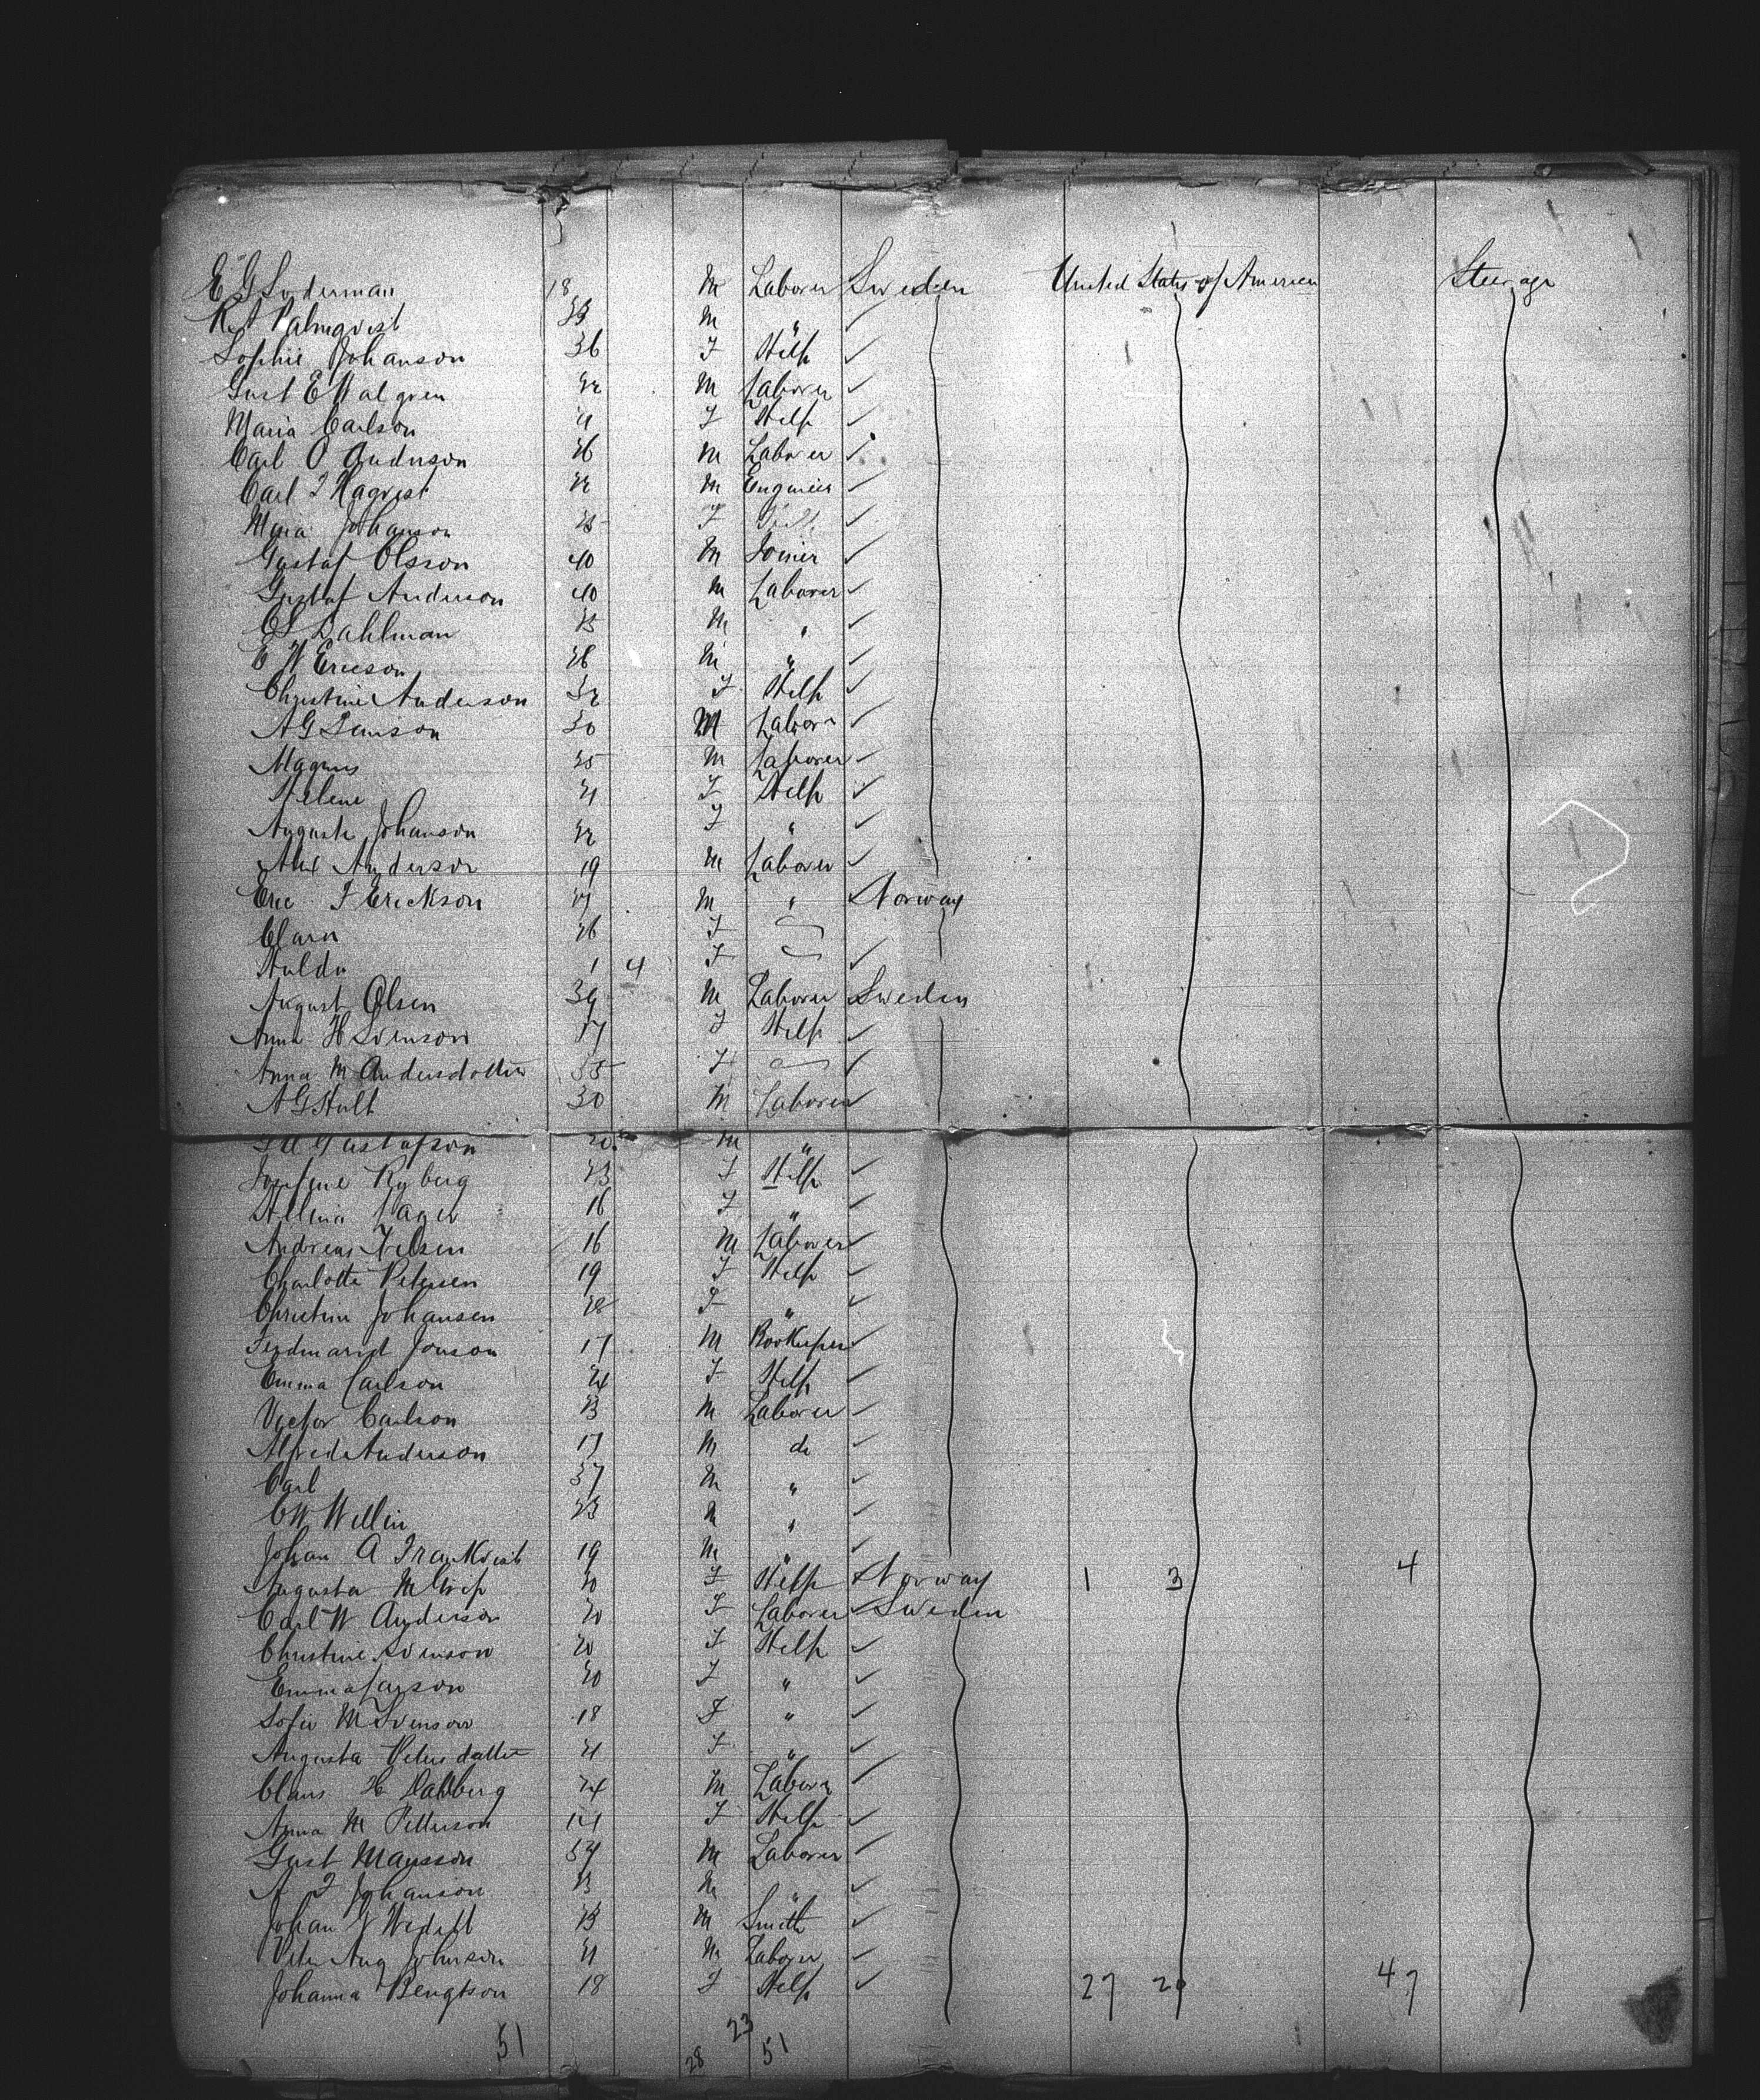 E G Soderman 18 M Laborer Sweden United States of America Steerage
Palmqvist 33 M "
Sophie Johanson 36 F Help
Gust E Walgren 22 M Laborer
Maria Carlson 21 F Help
Carl O Anderson 26 M Laborer
Carl F Hagvist 22 M Engineer
Maria Johanson 25 F Help
Gustaf Olsson 40 M Joiner
Gustaf Anderson 40 M Laborer
Dahlman 23 M "
W Ericson 26 M "
Christine Anderson 32 F Help
A G 30 M Labor
Magnus 25 M Laborer
Helene 21 F Help
Auguste Johanson 22 F "
Alex Anderson 19 M Laborer
Eric F Erickson 27 M " Norway
Clara 26 F
Hulda 1 4 F
August Olsen 39 M Laborer Sweden
Anna H Svenson 17 F Help
Anna M Andersdotter 55 F
A G Hult 30 M Laborer
Gustafson 20 M "
Josefine Ryberg 23 F Help
Lager 16 F "
Andreas Nelsen 16 M Laborer
Charlotte Petersen 19 F Help
Christine Johansen 28 F "
Ferdinand Jonson 17 M Bookeper
Emma Carlson 24 F Help
Victor Carlson 23 M Laborer
Alfred Anderson 17 M do
Carl 37 M "
C W Wellin 23 M "
Johan A Frankvist 19 M "
Augusta M Grip 20 F Help Norway 1 3 4
Carl W Anderson 20 F Laborer Sweden
Christine Svenson 20 F Help
Emma Larson 20 F "
Sofie M Svenson 18 F "
Augusta Petersdatter 21 F "
Claus H Dahlberg 24 M Labor
Anna M Petterson 21 F Help
Gust Mansson 59 M Laborer
A F Johanson 23 M "
Johan 23 M Smith
Peter Aug Johnson 21 M Labor
Johanna Bengtson 18 F Help 27 20 47
51 28 23 51